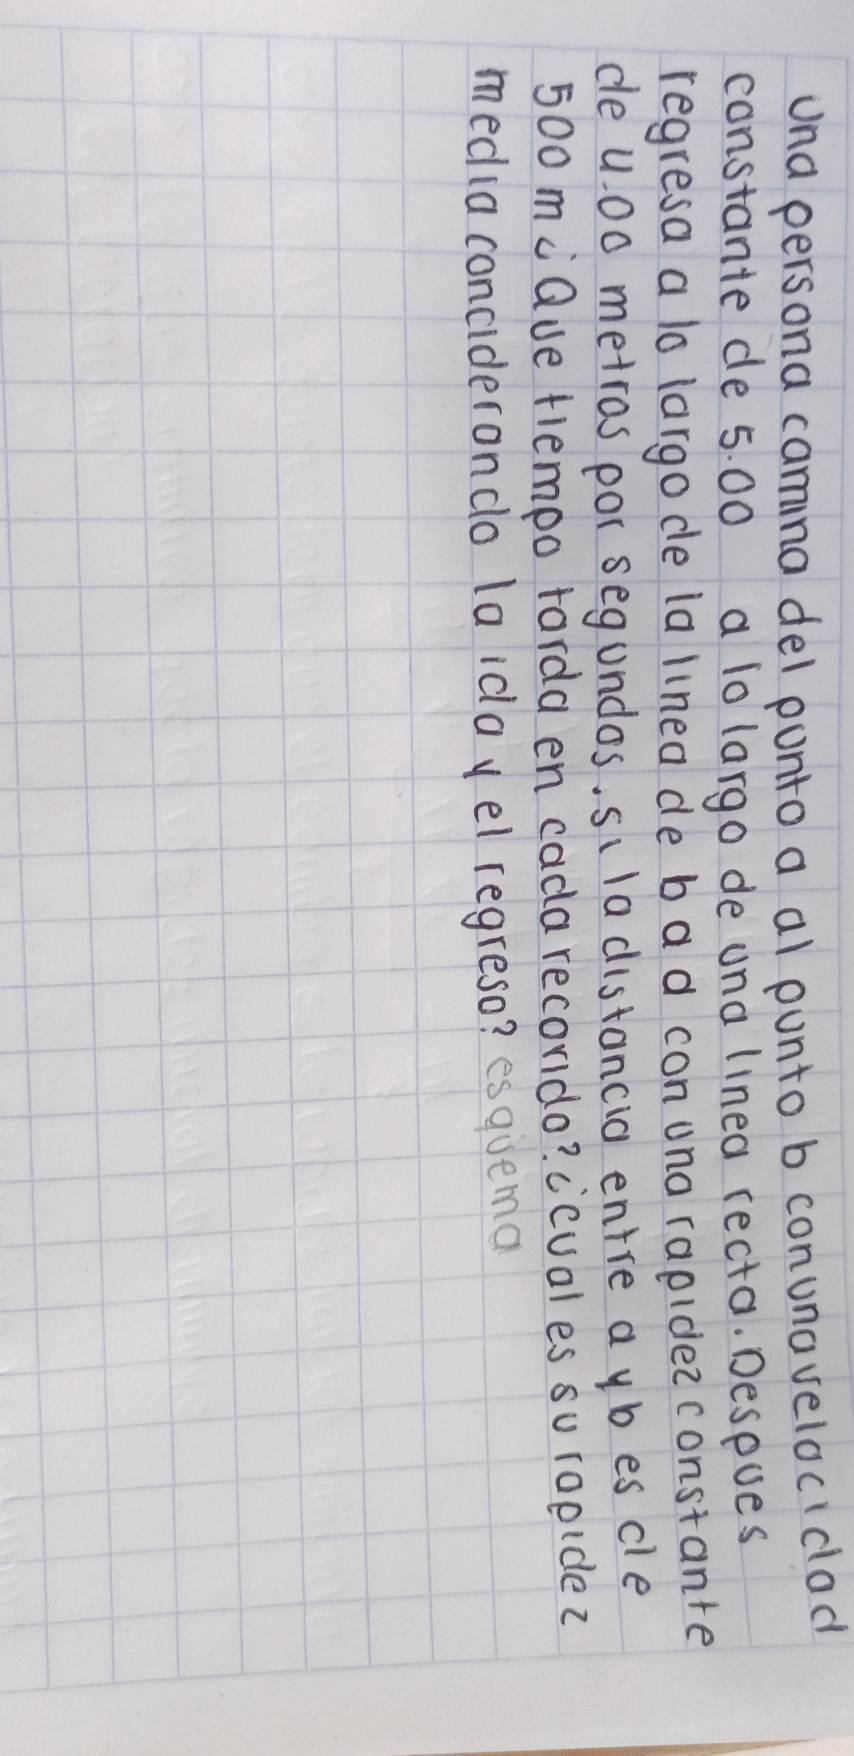 Una persona camina del punto a al punto b con una velocidad
constante de 5.00 a lo largo de una linea recta. Despues
regresa a lo largo de la linea de b a a con una rapidez constante
de 4.00 metros por segundos. si la distancia entre a y b es de
500 m ¿Que tiempo tarda en cada recorrido? ¿cual es su rapidez
media conciderando la ida y el regreso? esquema